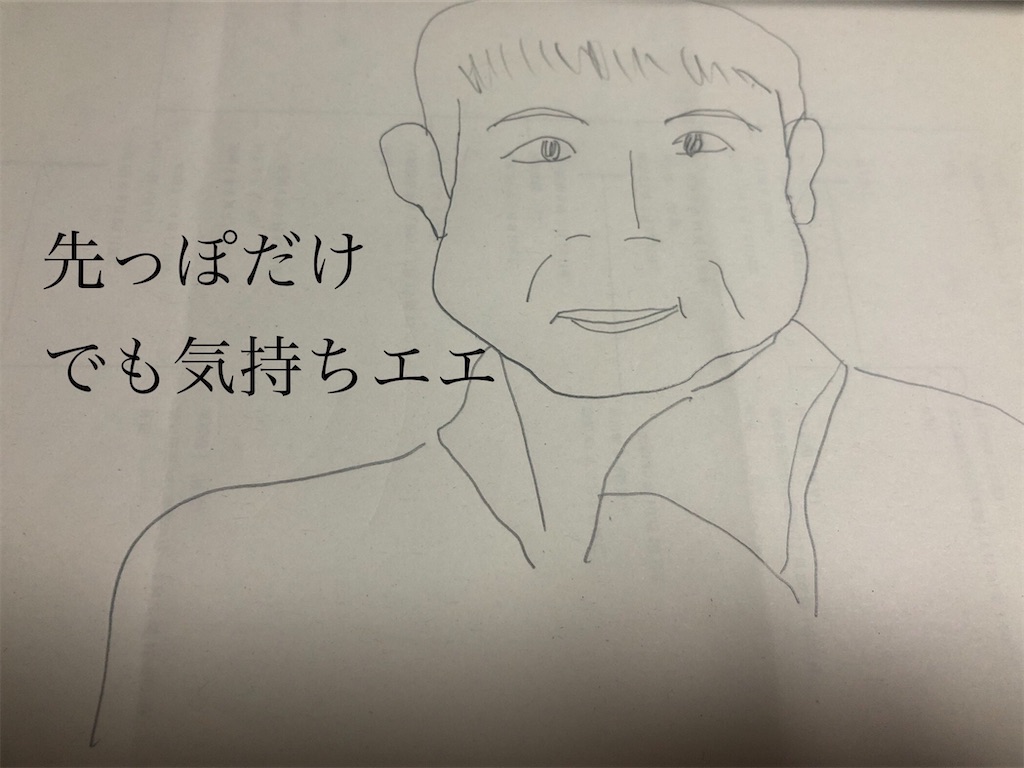 先っぽだけ
でも気持ちエエ